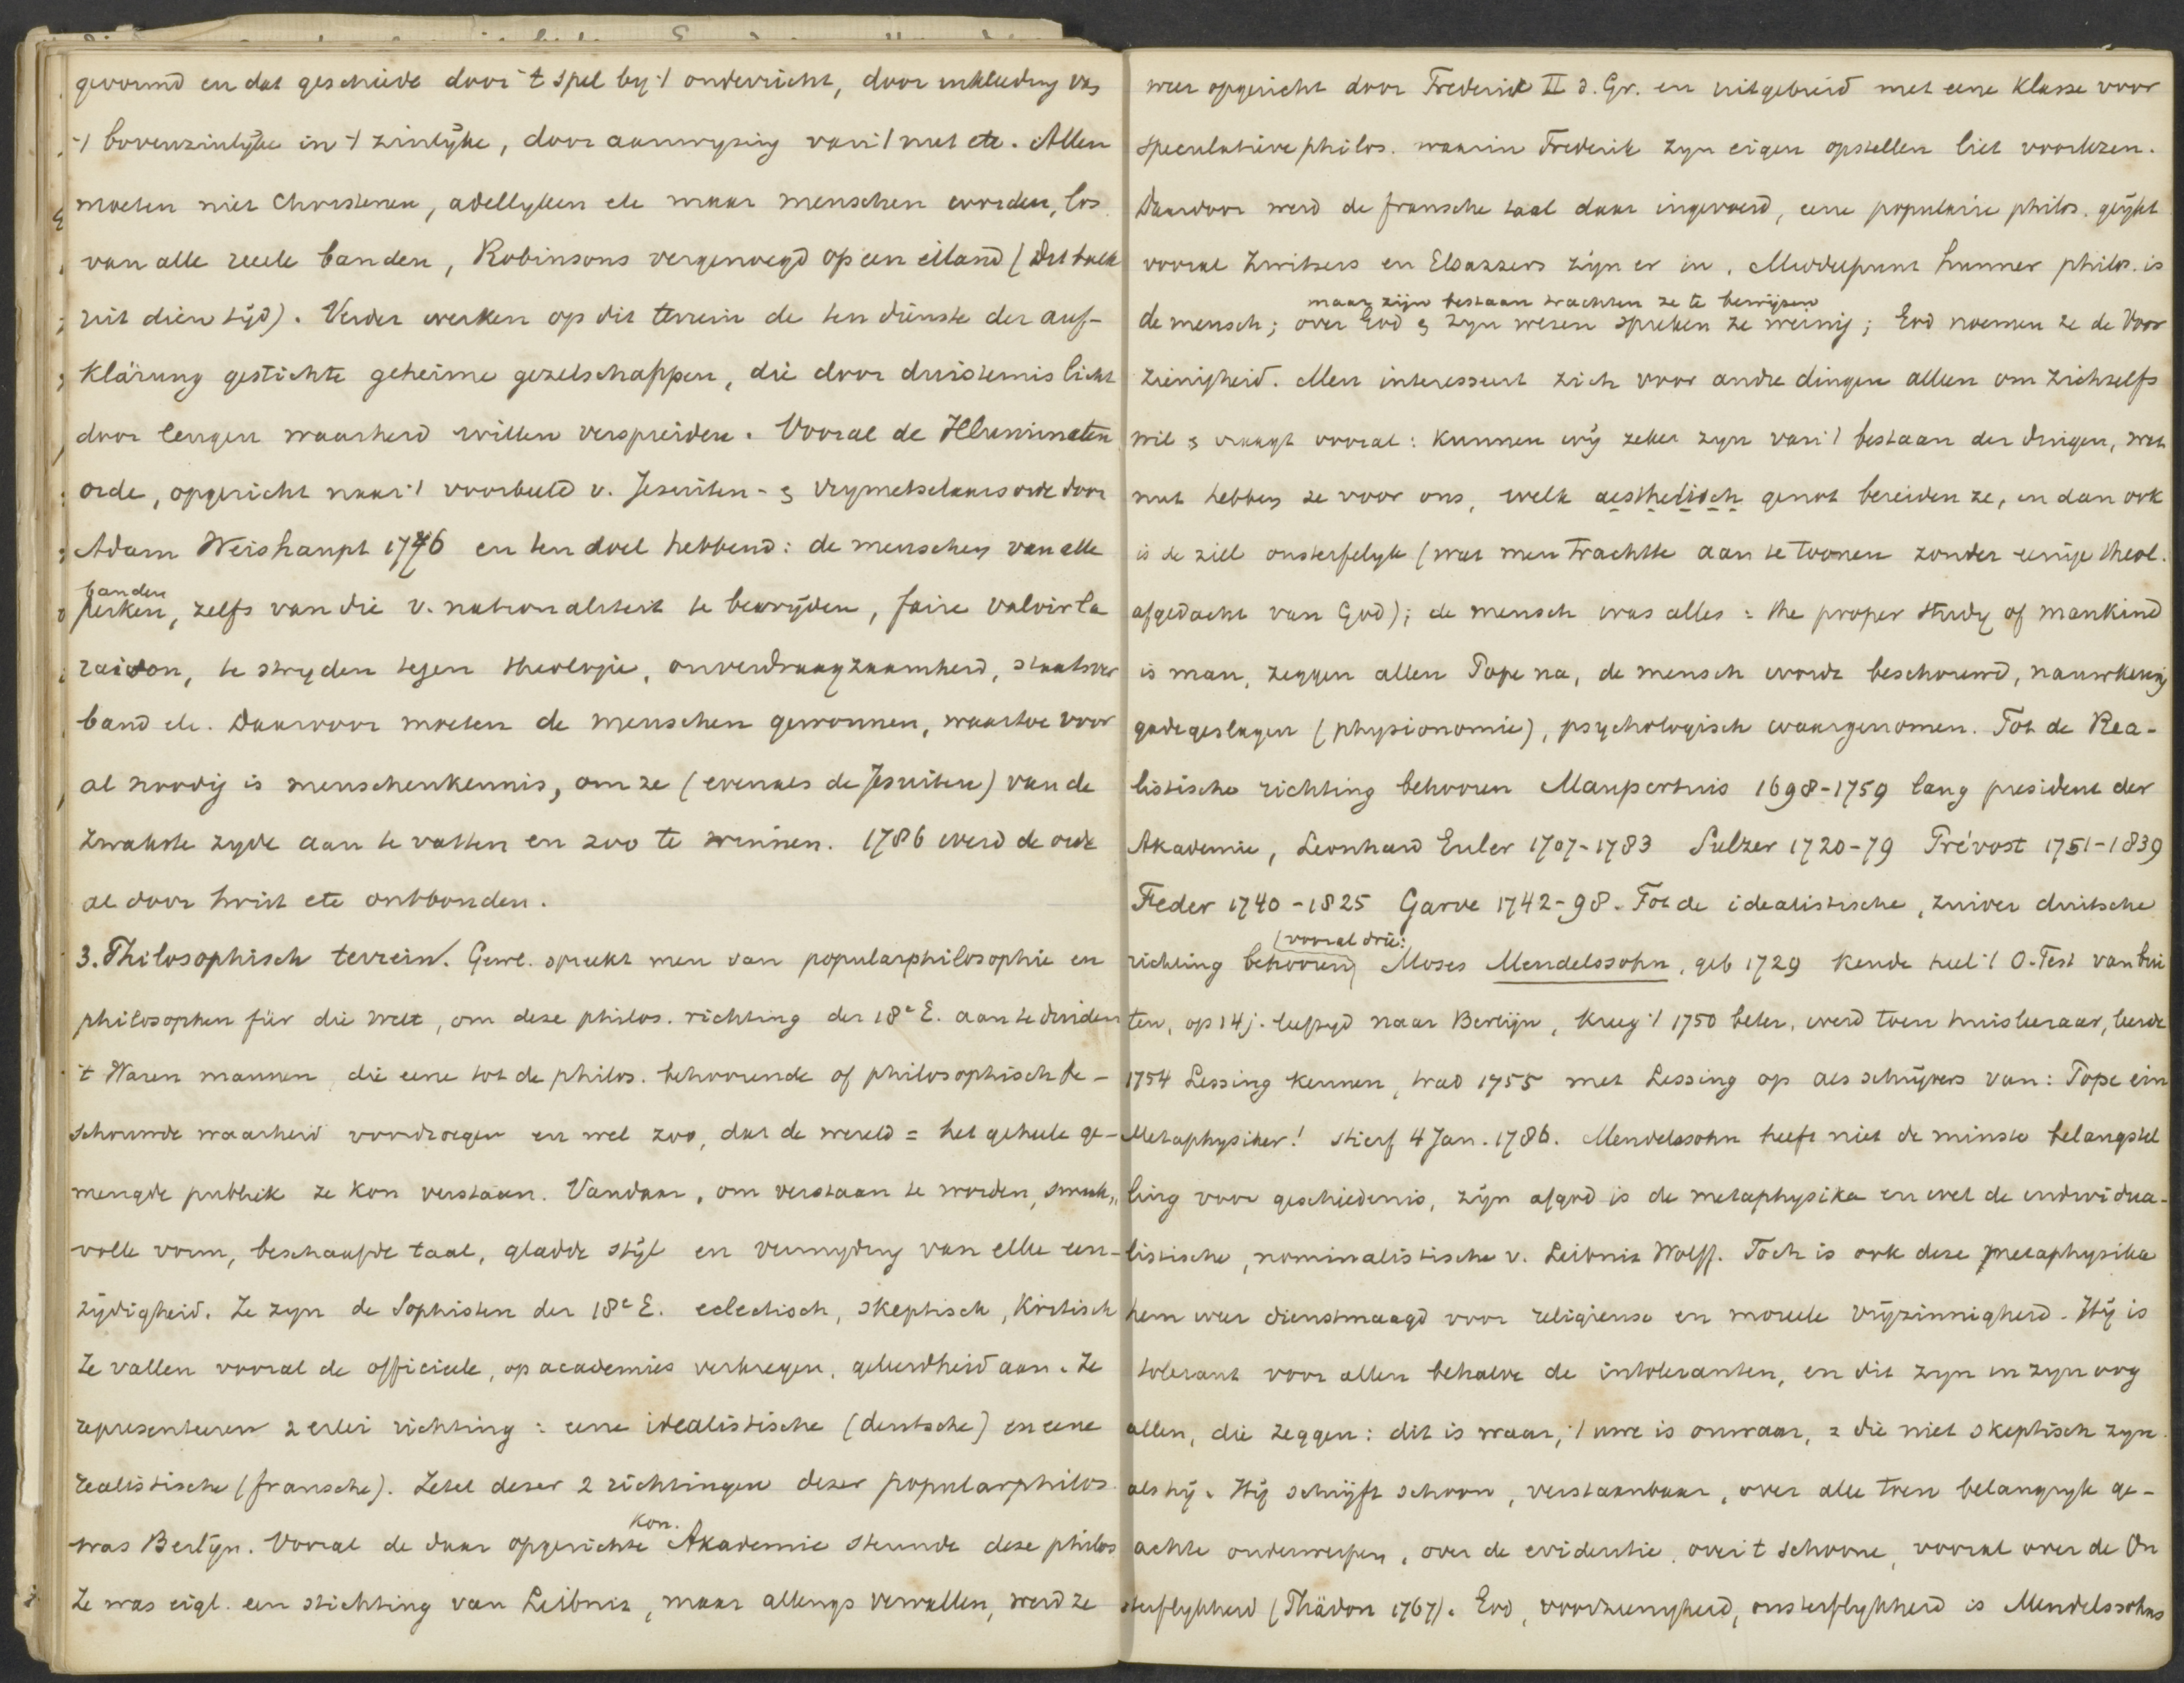 gevormd en dat geschiede door 't spel by 't onderricht, door inkleeding van
't bovenzinlijke in 't zinlijke, door aanwyzing van 't nut etc. Allen
moeten niet Christenen, adellyken etc maar menschen worden, los
van alle reele banden, Robinsons vergenoegd op een eiland (Dit boek
uit dien tijd). Verder werken op dit terrein de ten dienste der auf-
klärung gestichte geheime gezelschappen, die door duisternis licht
door leugen waarheid willen verspreiden. Vooral de Illuminaten
orde, opgericht naar 't voorbeeld v. Jesuiten- & Vrymetselaarsorde door
Adam Weishaupt 1776 en ten doel hebbend: de menschen van alle
banden
perken, zelfs van die v. nationaliteit te bevrijden, faire valoir la
raison, te stryden tegen theologie, onverdraagzaamheid, staatsver
band etc. Daarvoor moeten de menschen gewonnen, waartoe voor
al noodig is menschenkennis, om ze (evenals de Jesuiten) van de
zwakste zyde aan te vatten en zoo te winnen. 1786 werd de orde
al door twist etc ontbonden.
3. Philosophisch terrein. Gewl. spreekt men van popularphilosophie en
philosophen für die Welt, om deze philos. richting der 18e E. aan te duiden
't Waren mannen die eene tot de philos. behoorende of philosophisch be-
schouwde waarheid voordroegen en wel zoo, dat de wereld = het geheele ge-
mengde publiek ze kon verstaan. Vandaar, om verstaan te worden, smaak„
volle vorm, beschaafde taal, gladde stijl en vermyding van elke een-
zijdigheid. Ze zyn de Sophisten der 18e E. eclectisch, skeptisch, kritisch
Ze vallen vooral de officieele, op academies verkregen, geleerdheid aan. Ze
representeeren 2erlei richting: eene idealistische (deutsche) en eene
realistische (fransche). Zetel dezer 2 richtingen dezer popularphilos.
kon.
was Berlijn. Vooral de daar opgerichte Akademie steunde deze philos
Ze was eigl. een stichting van Leibniz, maar allengs vervallen, werd ze
weer opgericht door Frederik II d. Gr. en uitgebreid met eene klasse voor
speculatieve philos. waarin Frederik zyn eigen opstellen liet voorlezen.
Daardoor werd de fransche taal daar ingevoerd, eene populaire philos. geijkt
vooral Zwitsers en Elsassers zijn er in. Middelpunt hunner philos. is
maar zijn bestaan trachten ze te bewijzen
de mensch; over God & zyn wezen spreken ze weinig; God noemen ze de Voor
zienigheid. Men interesseert zich voor andre dingen alleen om zichzelfs
wil & vraagt vooral: kunnen wij zeker zyn van 't bestaan der dingen, wat
nut hebben ze voor ons, welk aesthetisch genot bereiden ze, en dan ook
is de ziel onsterfelyk (wat men trachtte aan te toonen zonder eenige theol.
afgedacht van God); de mensch was alles: the proper study of mankind
is man, zeggen allen Pope na, de mensch worde beschouwd, nauwkeurig
gadegeslagen (physionomie), psychologisch waargenomen. Tot de Rea-
listische richting behooren Maupertuis 1698-1759 lang president der
Akademie, Leonhard Euler 1707-1783 Sulzer 1720-79 Prévost 1751-1839
Feder 1740-1825 Garve 1742-98. Tot de idealistische, zuiver duitsche
(vooral drie:
richting behooren) Moses Mendelssohn, geb 1729 kende heel 't O-Test van bui
ten, op 14 j. leeftyd naar Berlijn, kreeg 't 1750 beter, werd toen huisleeraar, leerde
1754 Lessing kennen, trad 1755 met Lessing op als schrijvers van: Pope ein
Metaphysiker! stierf 4 Jan. 1786. Mendelssohn heeft niet de minste belangstel
ling voor geschiedenis, zijn afgod is de metaphysika en wel de individua-
listische, nominalistische v. Leibniz Wolff. Toch is ook deze metaphysika
hem weer dienstmaagd voor religieuse en moreele vrijzinnigheid. Hij is
tolerant voor allen behalve de intoleranten, en dit zyn in zyn oog
allen, die zeggen: dit is waar, 't uwe is onwaar, = die niet skeptisch zyn
als hij. Hij schrijft schoon, verstaanbaar, over alle toen belangryk ge-
achte onderwerpen, over de evidentie, over 't schoone, vooral over de On
sterflykheid (Phädon 1767). God, voorzienigheid, onsterflykheid is Mendelssohns